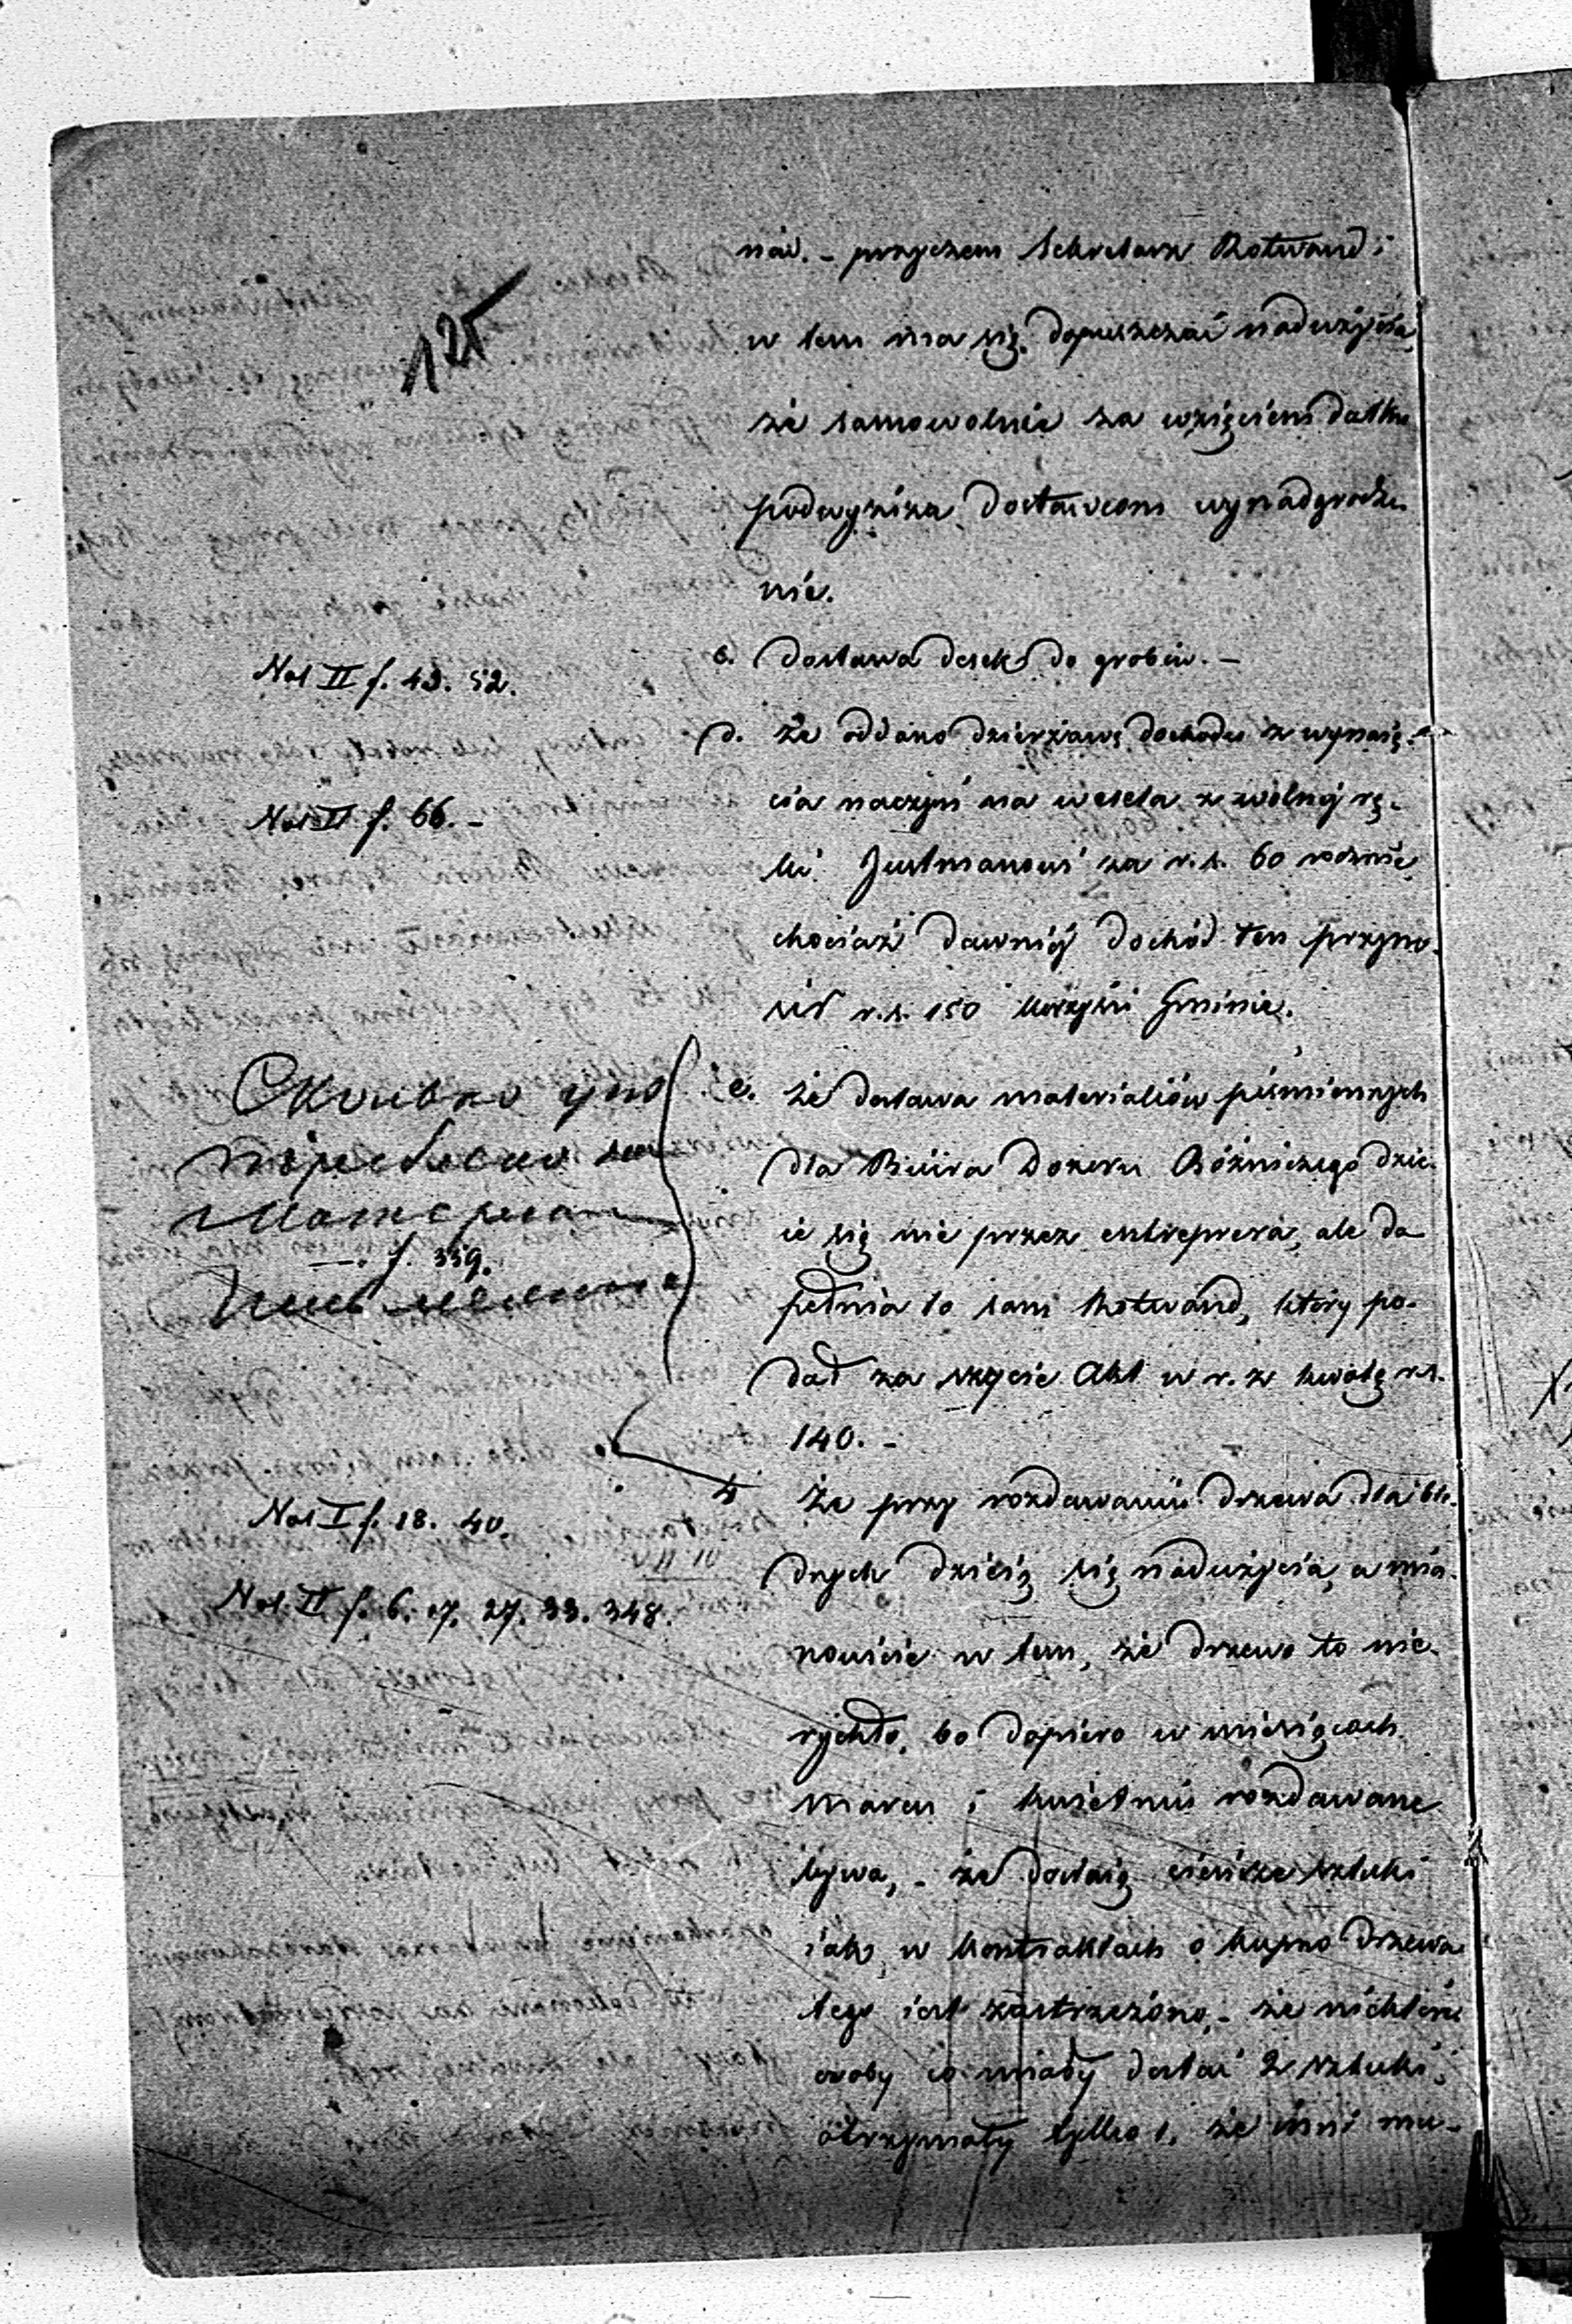 125
nać. - przyczem Sekretarz Rotwand i
w tem ma się dopuszczać nadużycia,
że samowolnie za wzięciem datku
podwyższa dostawcom wynadgrodze
nie.
Vol II f. 43. 52.
c. dostawa desek do grobów. -
d. że oddano dzierżawę dochodu z wynaię-
Vol II f. 66. -
cia naczyń na wesela z wolnéj rę-
ki Justmanowi za r.s. 60 rocznie,
chociaż dawniéj dochód ten przyno-
sił r.s. 150 korzyści Gminie.
Сколько
e. że dostawa materiałów piśmiennych
dla Biura Dozoru Bóżniczego dzie-
ie się nie przez entreprera, ale do
f. 359.
pełnia to sam Rotwand, który po-
dał za szycie Akt w r. z kwotę r.s.
140. -
Vol I f. 18. 40.
że przy rozdawaniu drzewa dla bie-
Vol II f. 6. 17. 27. 33. 348.
dnych dzieią się nadużycia, a mia-
nowicie w tem, że drzewo to nie-
rychło, bo dopiero w miesiącach
marcu i kwietniu rozdawane
bywa, - że dostaią cieńsze sztuki
iak w kontraktach o kupno drzewa
tego iest zastrzeżono, - że niektóre
osoby co miały dostać 2 sztuki,
otrzymały tylko 1, że inni mu-